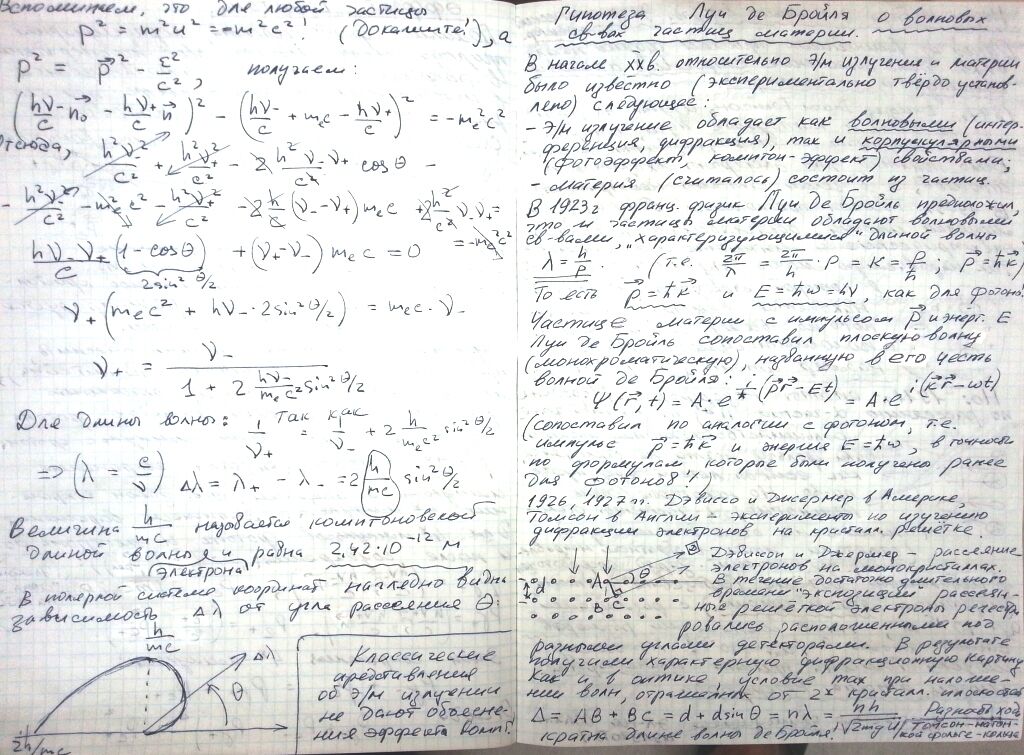 Вспоминаем, что для любой частицы
p² = m²u² = -m²c² ! (Докажите!), а
p² = p⃗² - ε²/c² , получаем:
(hν₋/c n⃗₀ - hν₊/c n⃗)² - (hν₋/c + mₑc - hν₊/c)² = -mₑ²c²
Отсюда, h²ν₋²/c² + h²ν₊²/c² - 2 h²ν₋ν₊/c² cosθ -
- h²ν₋²/c² - mₑ²c² - h²ν₊²/c² - 2 h/c (ν₋ - ν₊) mₑc + 2h²/c² ν₋ν₊ = -mₑ²c²
hν₋ν₊/c (1 - cosθ) + (ν₊ - ν₋) mₑc = 0
2sin²θ/2
ν₊ (mₑc² + hν₋ · 2sin²θ/2) = mₑc · ν₋
ν₊ = ν₋ / (1 + 2 hν₋/mₑc² sin²θ/2)
Для длины волны: так как 1/ν₊ = 1/ν₋ + 2 h/mₑc² sin²θ/2
=> (λ = c/ν) Δλ = λ₊ - λ₋ = 2 h/mc sin²θ/2
Величина h/mc называется комптоновской
длиной волны и равна 2,42·10⁻¹² м
электрона
В полярной системе координат наглядно видна
зависимость Δλ от угла рассеяния θ:
h/mc
Δλ
θ
2h/mc
Классические
представления
об э/м излучении
не дают объясне-
ния эффекта Компт.
Гипотеза Луи де Бройля о волновых
св-вах частиц материи.
В начале XXв. относительно э/м излучения и материи
было известно (экспериментально твёрдо установ-
лено) следующее:
- э/м излучение обладает как волновыми (интер-
ференция, дифракция), так и корпускулярными
(фотоэффект, комптон-эффект) свойствами;
- материя (считалось) состоит из частиц.
В 1923г франц. физик Луи де Бройль предположил,
что и частицы материи обладают волновыми
св-вами, "характеризующимися" длиной волны
λ = h/p . (т.е. 2π/λ = 2π/h · p = k = p/ħ ; p⃗ = ħk⃗)
То есть p⃗ = ħk⃗ и E = ħω = hν, как для фотона!
Частице материи с импульсом p⃗ и энерг. E
Луи де Бройль сопоставил плоскую волну
(монохроматическую), названную в его честь
волной де Бройля: Ψ(r⃗,t) = A·e^{i/ħ(p⃗r⃗-Et)} = A·e^{i(k⃗r⃗-ωt)}
(сопоставил по аналогии с фотоном, т.е.
импульс p⃗ = ħk⃗ и энергия E = ħω, в точности
по формулам которые были получены ранее
для фотонов!)
1926, 1927 гг. Дэвиссо и Джермер в Америке,
Томсон в Англии - эксперименты по изучению
дифракции электронов на кристалл. решётке.
Дэвиссон и Джермер - рассеяние
электронов на монокристаллах.
В течение достаточно длительного
времени "экспозиции" рассеян-
ные решёткой электроны регистри-
ровались расположенными под
d A θ B C
разными углами детекторами. В результате
получили характерную дифракционную картину
Как и в оптике условие max при наложе-
нии волн, отражённых от 2х кристалл. плоскостей
Δ = AB + BC = d + d sinθ = nλ = nh/√(2mqU) Разность хода
кратна длине волны де Бройля! Томсон - на тон-
кой фольге - кольца